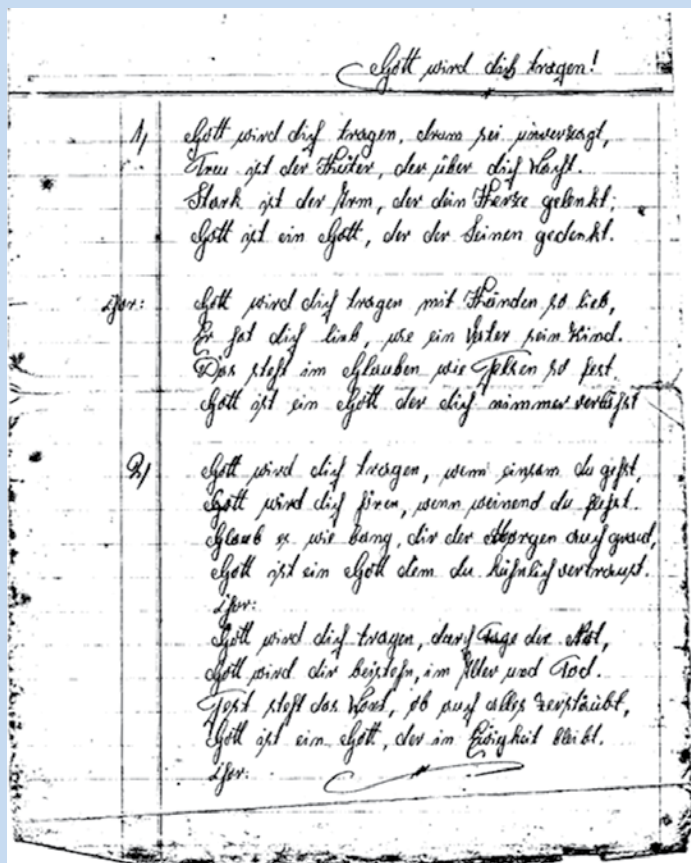 Gott wird dich tragen!
1, Gott wird dich tragen, drum sei unverzagt,
Treu ist der Hüter, der über dich Wacht.
Stark ist der Arm, der dein Herze gelenkt;
Gott ist ein Gott, der der Seinen gedenkt.
Chor: Gott wird dich tragen mit Händen so lieb,
Er hat dich lieb, wie ein Vater sein Kind.
Das steht im Glauben wie Felsen so fest,
Gott ist ein Gott der dich nimmer verläßt
2, Gott wird dich tragen, wenn einsam du gehst,
Gott wird dich hören, wenn weinend du flehst.
Glaub es wie bang, dir der Morgen auch graud,
Gott ist ein Gott dem du kühnlich vertraust.
Chor:
Gott wird dich tragen, durch Tage der Not,
Gott wird dir beistehn, im Alter und Tod.
Fest steht das Wort, ob auch alles zerstäubt,
Gott ist ein Gott, der in Ewigkeit bleibt.
Chor: